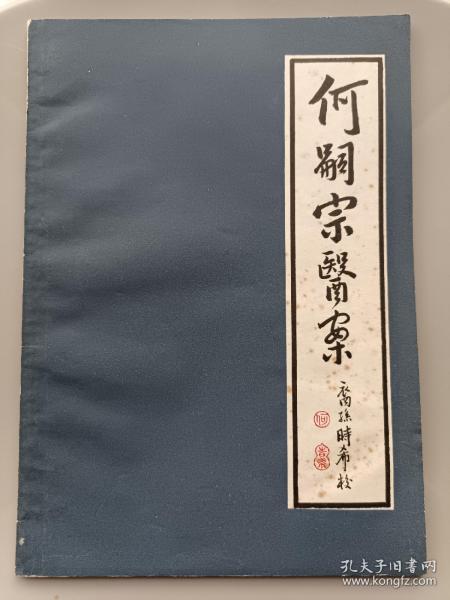 何嗣宗醫案
裔孫時希校
何
孔夫子旧书网
www.kongfz.com